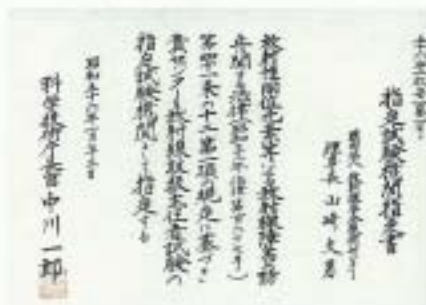 指定試験機関指定書
理事長 山崎文男
放射性同位元素等による放射線障害の防
止に関する法律(昭和三十二年法律第百六十七号)
第四十一条の十二第一項の規定に基づき
貴センターを放射線取扱主任者試験の
指定試験機関として指定する
昭和五十六年
科学技術庁長官 中川一郎